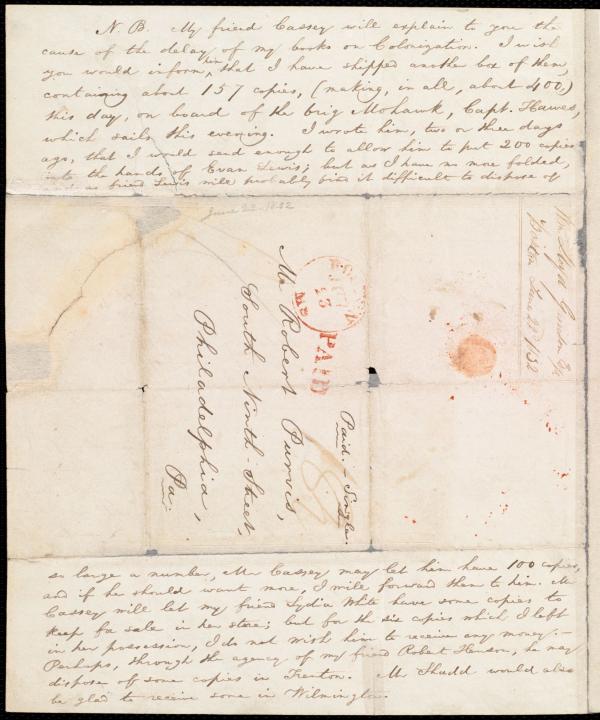 N. B. My friend Cassey will explain to you the
cause of the delay of my books on Colonization. I wish
you would inform him, that I have shipped another box of them,
containing about 157 copies, (making, in all, about 400,)
this day, on board of the brig Mohawk, Capt. Hawes,
which sails this evening. I wrote him, two or three days
ago, that I would send enough to allow him to put 200 copies
into the hands of Evan Lewis; but as I have no more folded,
and as friend Lewis will probably find it difficult to dispose of
June 22 1832
Wm Lloyd
Boston June 22d /32
BOSTON
MS
PAID
Mr Robert Purvis,
South Ninth-Street,
Philadelphia,
Pa.
Paid. - Single.
so large a number, Mr Cassey may let him have 100 copies,
and if he should want more, I will forward them to him. Mr
Cassey will let my friend Lydia White have some copies to
keep for sale in her store; but for the six copies which I left
in her possession, I do not wish him to receive any money. —
Perhaps, through the agency of my friend Robert Henson, he may
dispose of some copies in Trenton. Mr Shadd would also
be glad to receive some in Wilmington.